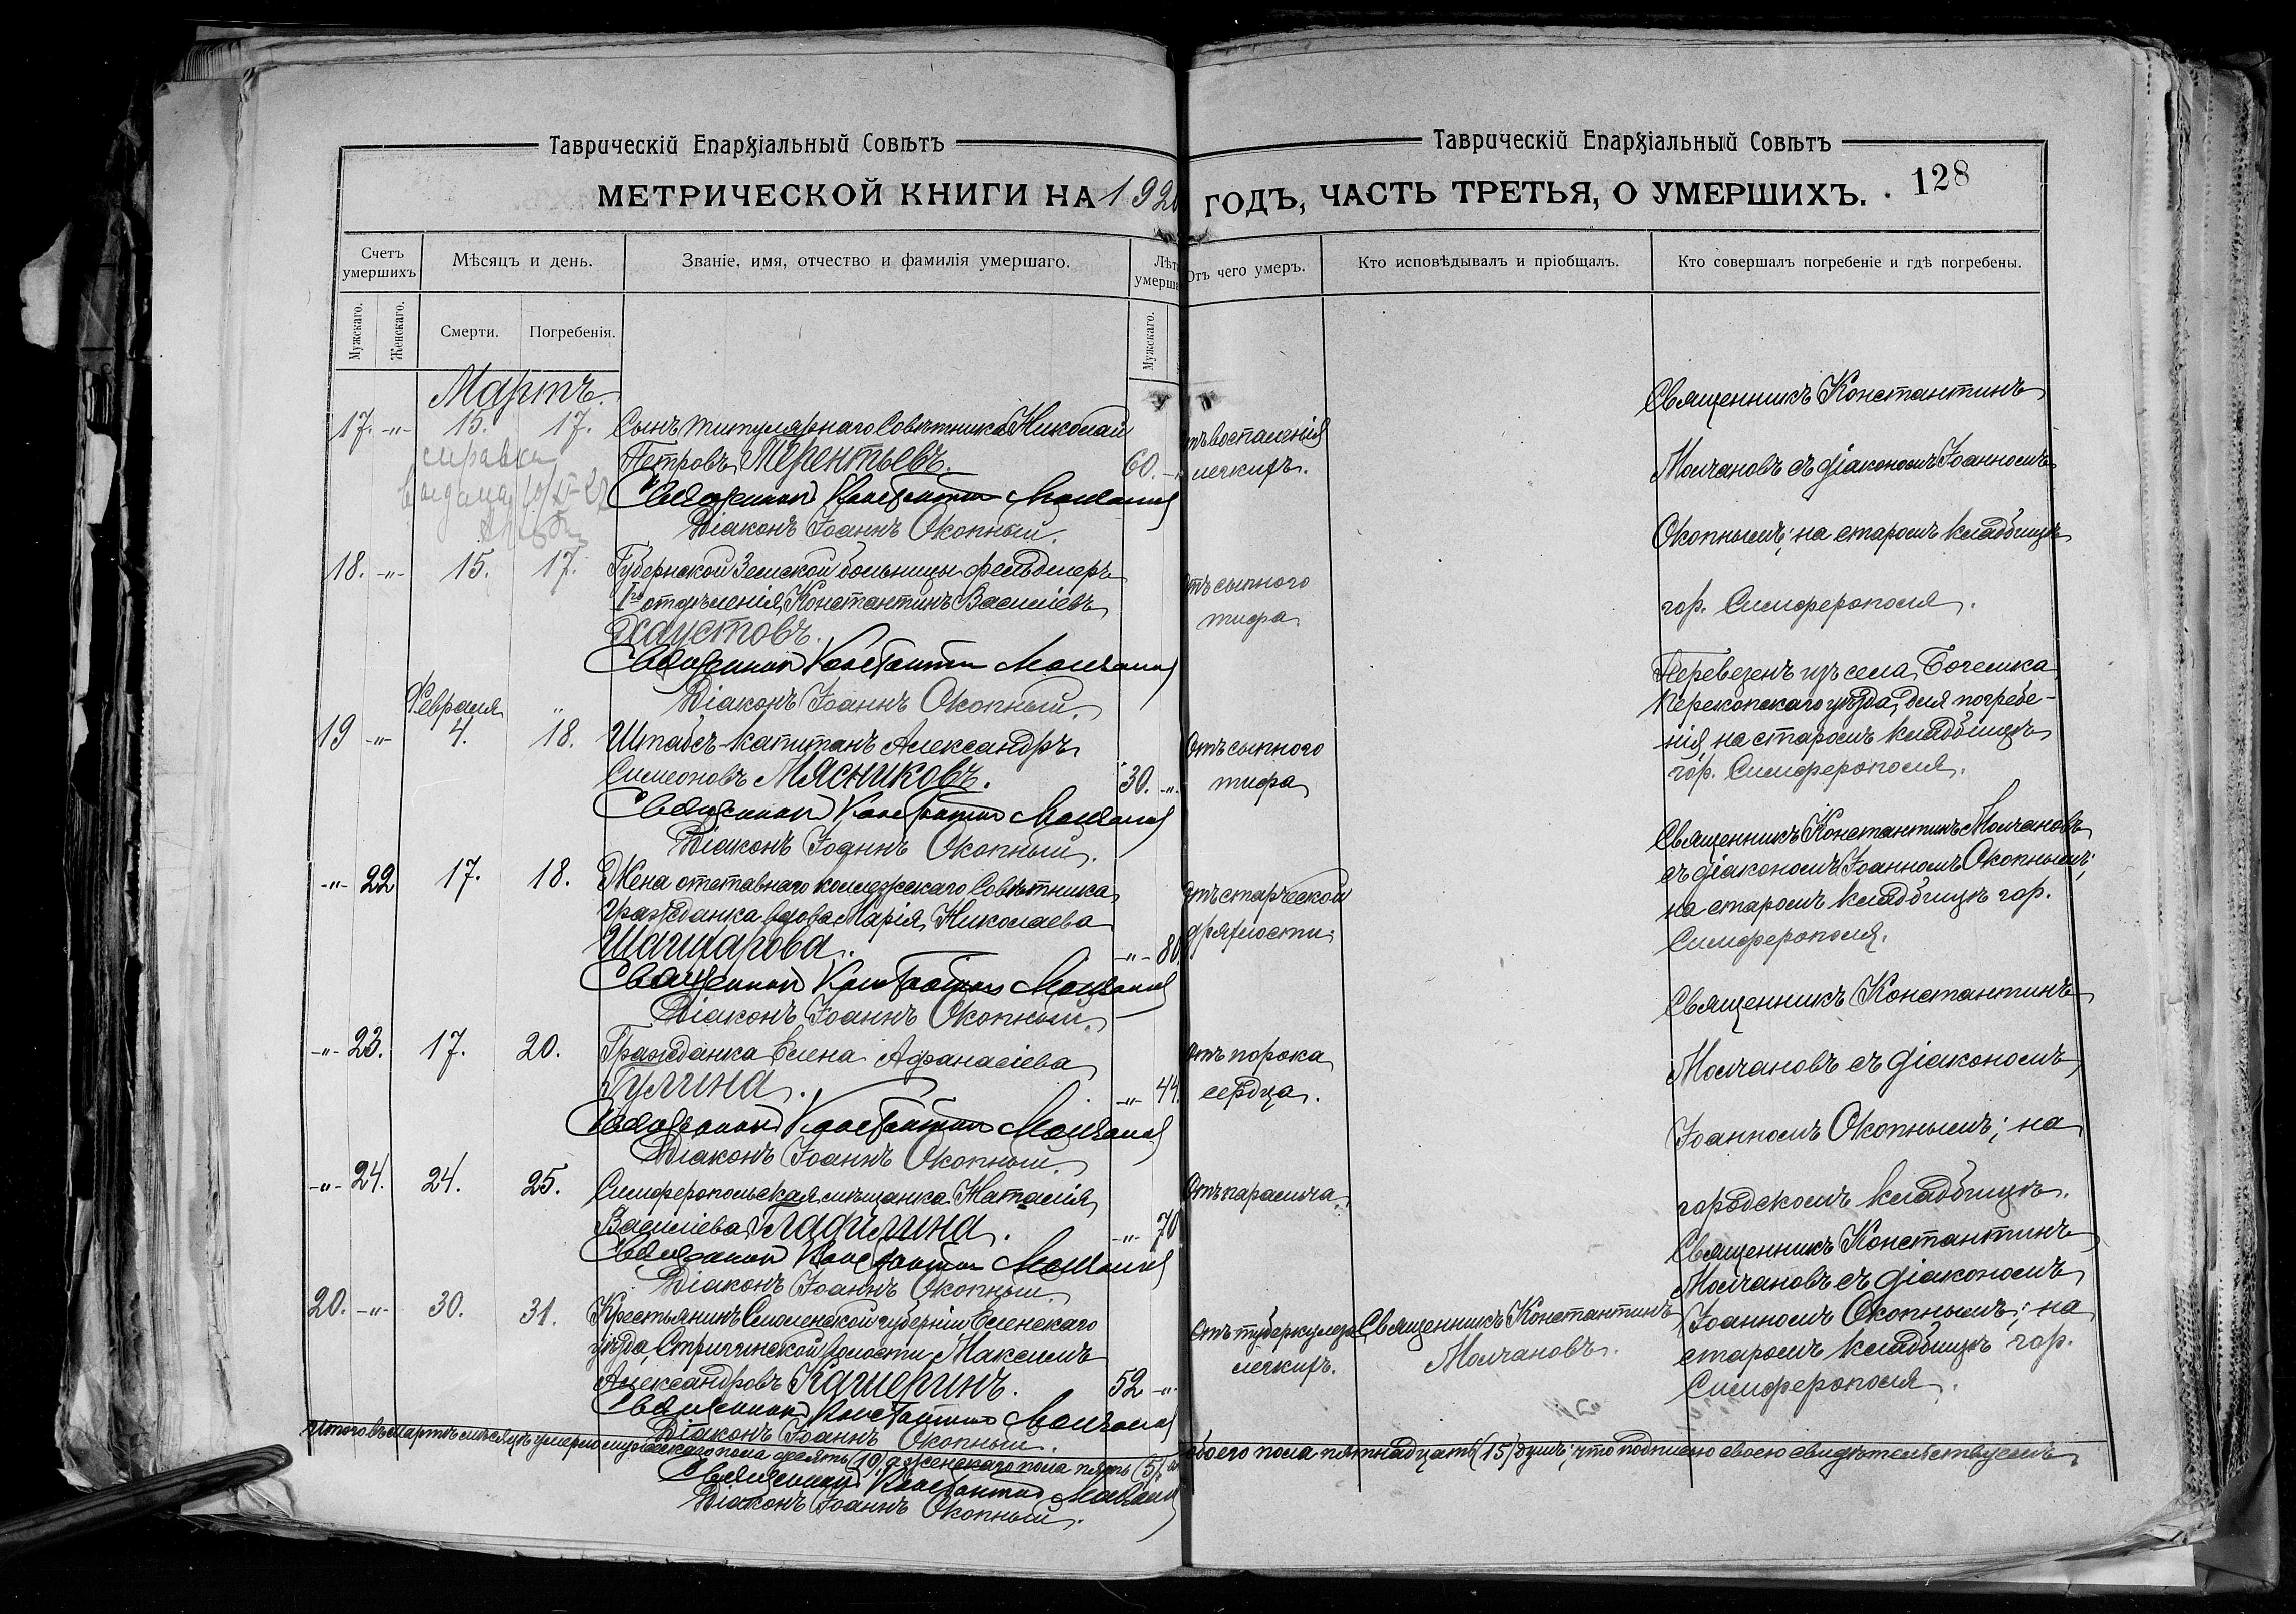 Таврическій Епархіальный Совѣтъ
МЕТРИЧЕСКОЙ КНИГИ НА 1920
Счетъ умершихъ
Мѣсяцъ и день.
Званіе, имя, отчество и фамилія умершаго.
Лѣта умерша
Мужскаго.
Женскаго.
Смерти.
Погребенія.
Мужскаго.
Мартъ.
17. -"- 15. 17. Сынъ титулярнаго Совѣтника Николай
справка
Петровъ Терентьевъ. 60. -"-
выдана
Священникъ Константинъ Молчановъ
Діаконъ Іоаннъ Окопный.
18. -"- 15. 17. Губернской Земской больницы фельдшеръ
1го отдѣленія, Константинъ Василіевъ
Хаустовъ.
Священникъ Константинъ Молчановъ
Февраля "
Діаконъ Іоаннъ Окопный.
19 -"- 4. 18. Штабсъ-капитанъ Александръ
Симеоновъ Мясниковъ. 30. -"-
Священникъ Константинъ Молчановъ
Діаконъ Іоаннъ Окопный.
-"- 22 17. 18. Жена отставнаго коллежскаго Совѣтника
гражданка вдова Марія Николаева
-"- 80.
Священникъ Константинъ Молчановъ
Діаконъ Іоаннъ Окопный.
-"- 23. 17. 20. Гражданка Елена Афанасіева
Гулина. -"- 44.
Священникъ Константинъ Молчановъ
Діаконъ Іоаннъ Окопный.
-"- 24. 24. 25. Симферопольская мѣщанка Наталія
Василіева Лафилина. -"- 70
Священникъ Константинъ Молчановъ
Діаконъ Іоаннъ Окопный.
20. -"- 30. 31. Крестьянинъ Смоленской губерніи Еленскаго
уѣзда, волости Максимъ
Александровъ Кашеринъ. 52 -"-
Священникъ Константинъ Молчановъ
Діаконъ Іоаннъ Окопный.
Итого въ мартѣ мѣсяцѣ умерло мужескаго пола десять (10) женскаго пола пять (5), а
Священникъ Константинъ Молчановъ
Діаконъ Іоаннъ Окопный.
Таврическій Епархіальный Совѣтъ
ГОДЪ, ЧАСТЬ ТРЕТЬЯ, О УМЕРШИХЪ. 128
Отъ чего умеръ.
Кто исповѣдывалъ и пріобщалъ.
Кто совершалъ погребеніе и гдѣ погребены.
Священникъ Константинъ
тъ воспаленія
легкихъ.
Молчановъ съ діакономъ Іоанномъ
Окопнымъ; на старомъ кладбищѣ
отъ сыпного
тифа.
гор. Симферополя.
Перевезенъ изъ села Богемка
Перекопскаго уѣзда, для погребе-
нія на старомъ кладбищѣ
гор. Симферополя.
Отъ сыпного
тифа
Священникъ Константинъ Молчановъ
съ діакономъ Іоанномъ Окопнымъ;
на старомъ кладбищѣ гор.
Симферополя.
отъ старческой
дряхлости.
Священникъ Константинъ
Молчановъ съ діакономъ
Іоанномъ Окопнымъ; на
городскомъ кладбищѣ.
Отъ порока
сердца.
Отъ паралича.
Священникъ Константинъ
Молчановъ съ діакономъ
Іоанномъ Окопнымъ; на
старомъ кладбищѣ гор.
Симферополя.
Отъ туберкулеза
легкихъ.
Священникъ Константинъ
Молчановъ.
обоего пола пятнадцать (15) душъ; что подписью своею свидѣтельствуемъ.